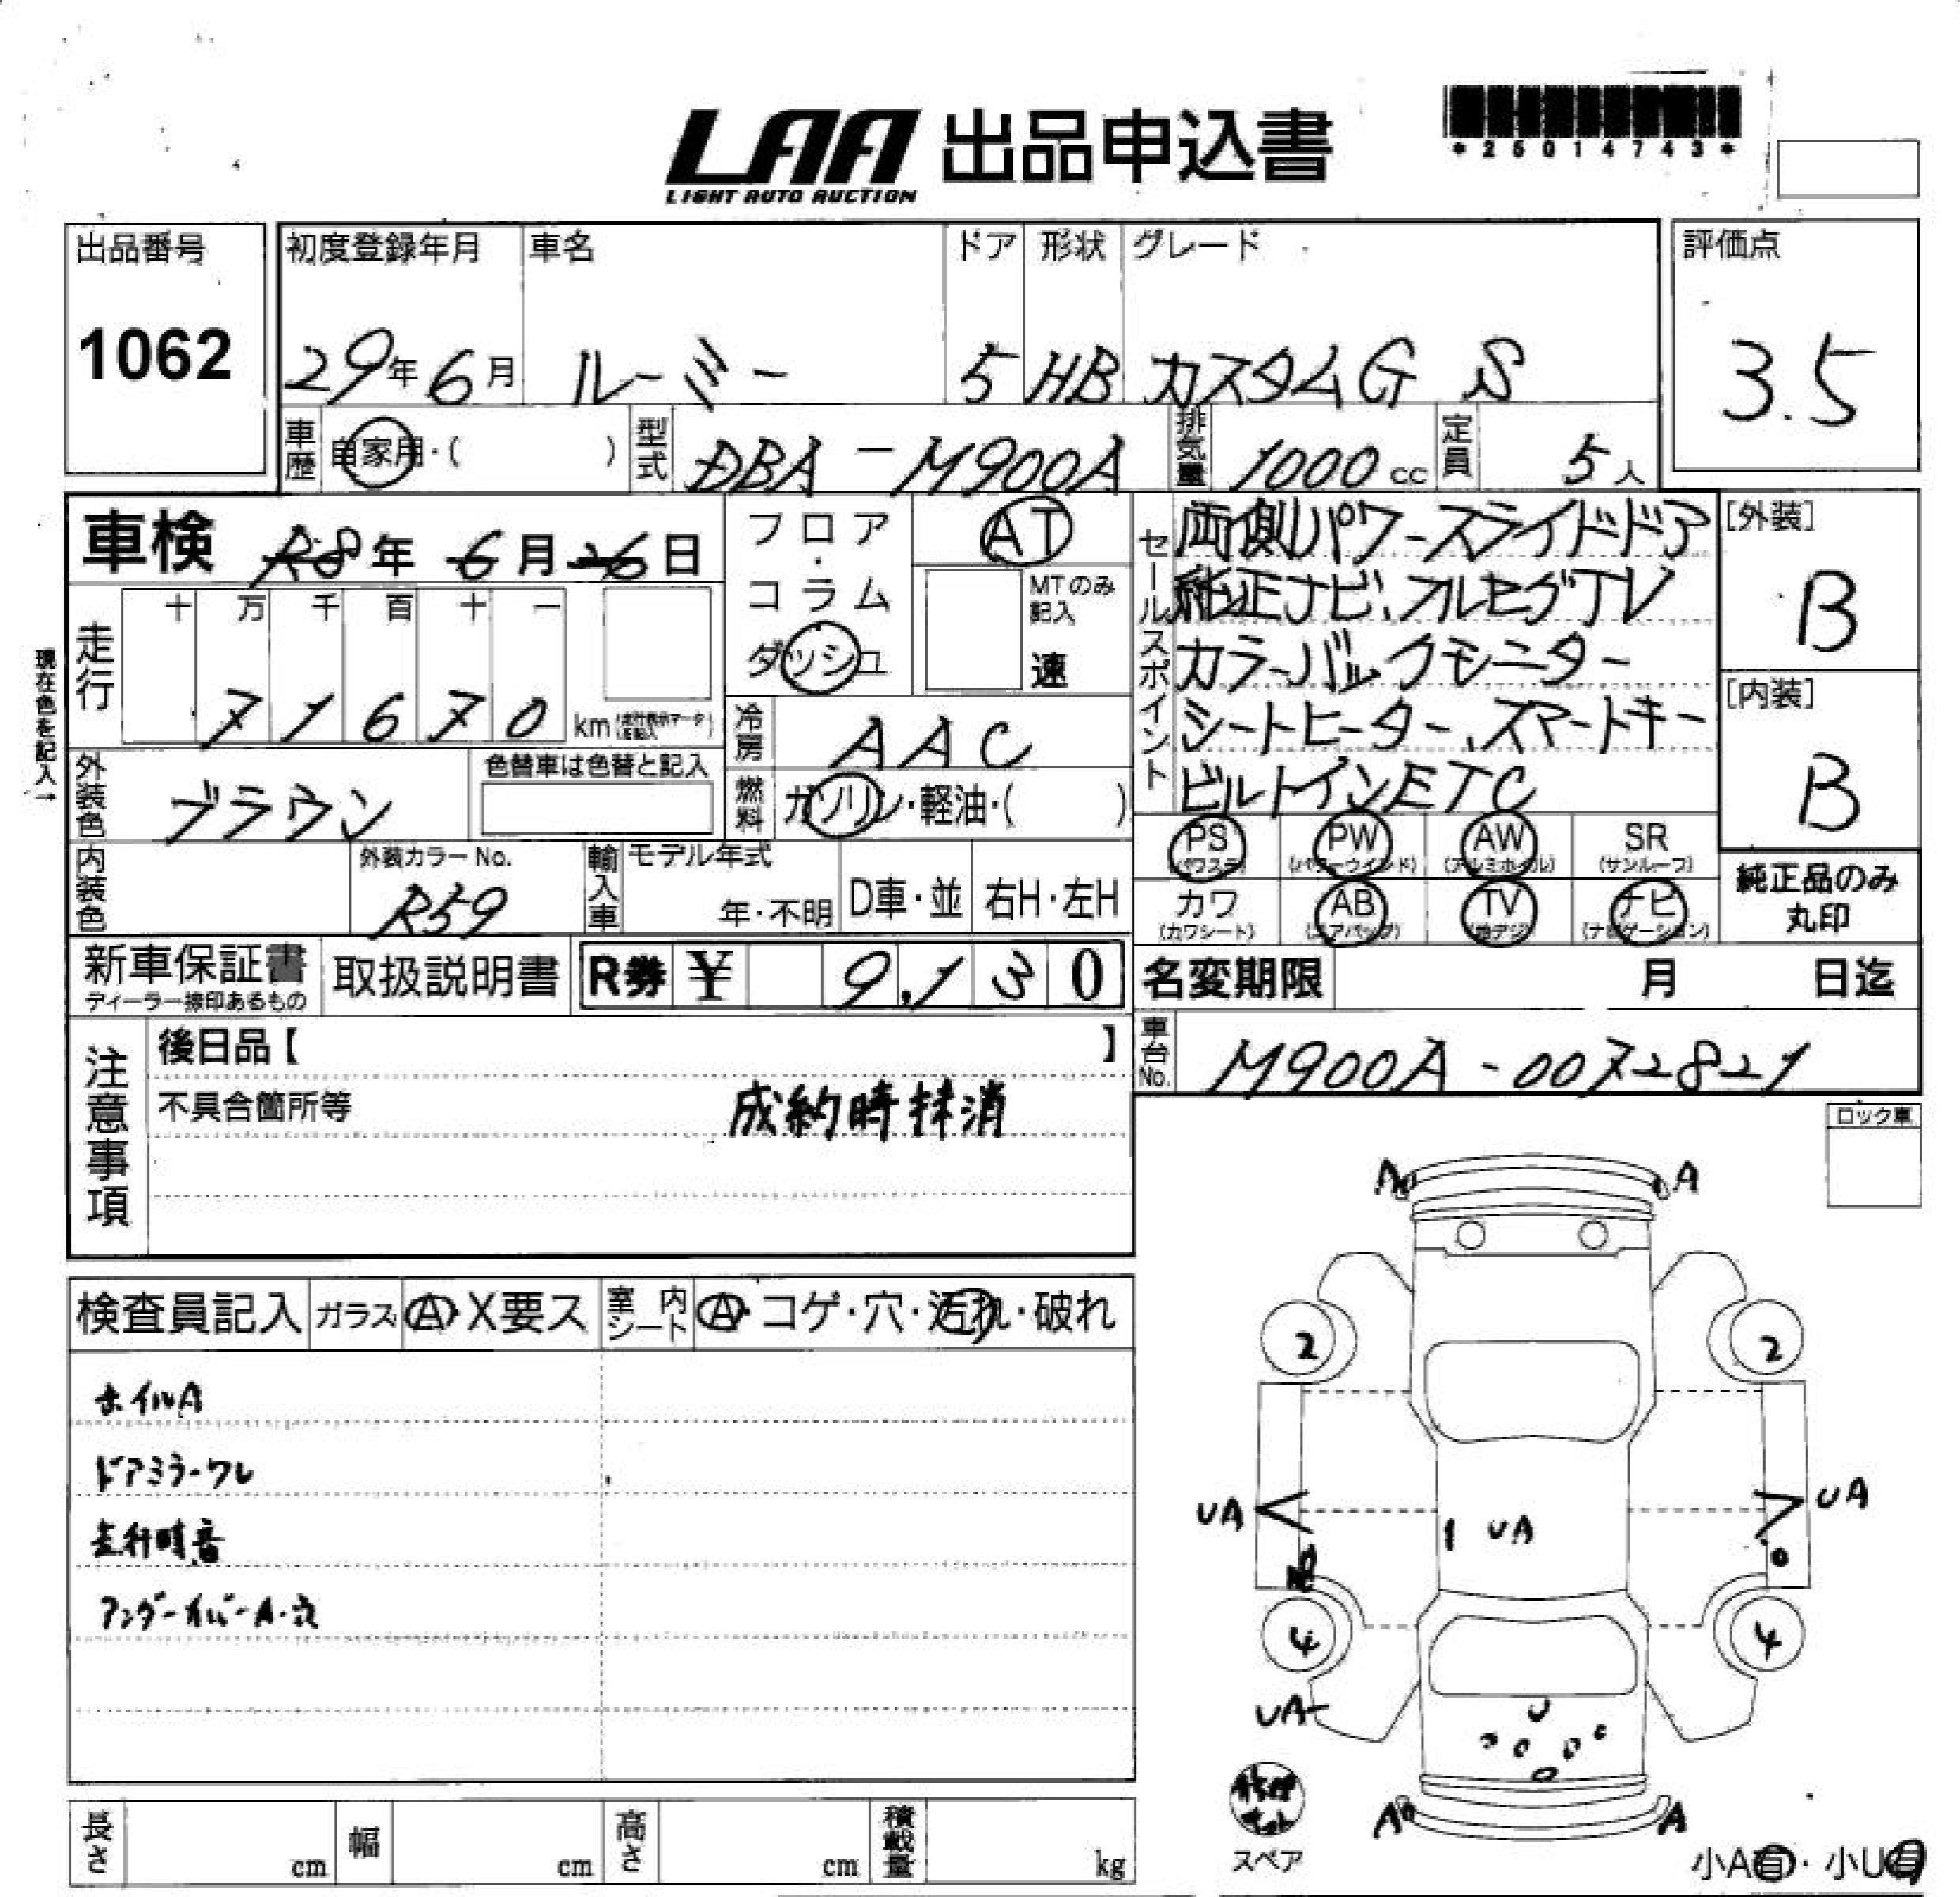 LAA 出品申込書
LIGHT AUTO AUCTION
*25014743*
出品番号
1062
初度登録年月
29年6月
車名
ルーミー
ドア
5
形状
HB
グレード
カスタムG S
評価点
3.5
車歴
自家用・( )
型式
DBA-M900A
排気量
1000cc
定員
5人
車検 R8年 6月 26日
走行
十 万 千 百 十 一
7 1 6 7 0 km
現在色を記入→
フロア・コラム
ダッシュ
AT
MTのみ記入
速
冷房
AAC
燃料
ガソリン・軽油・( )
外装色
ブラウン
色替車は色替と記入
内装色
外装カラーNo.
R59
輸入車
モデル年式
年・不明
D車・並
右H・左H
セールスポイント
両側パワースライドドア
純正ナビ、フルセグTV
カラーバックモニター
シートヒーター、スマートキー
ビルトインETC
[外装]
B
[内装]
B
PS (パワステ)
PW (パワーウインド)
AW (アルミホイル)
SR (サンルーフ)
カワ (カワシート)
AB (エアバッグ)
TV (地デジ)
ナビ (ナビゲーション)
純正品のみ
丸印
新車保証書
ディーラー捺印あるもの
取扱説明書
R券 ¥ 9,130
名変期限 月 日迄
車台No.
M900A-0072821
注意事項
後日品【 】
不具合箇所等
成約時抹消
ロック車
検査員記入
ガラス
A・X要ス
室内シート
A・コゲ・穴・汚れ・破れ
ホイルA
ドアミラーワレ
走行時音
アンダーカバーA・欠
A
A
2
2
UA
UA
UA
4
4
UA
U
A
A
スペア
小A有・小U有
長さ cm
幅 cm
高さ cm
積載量 kg